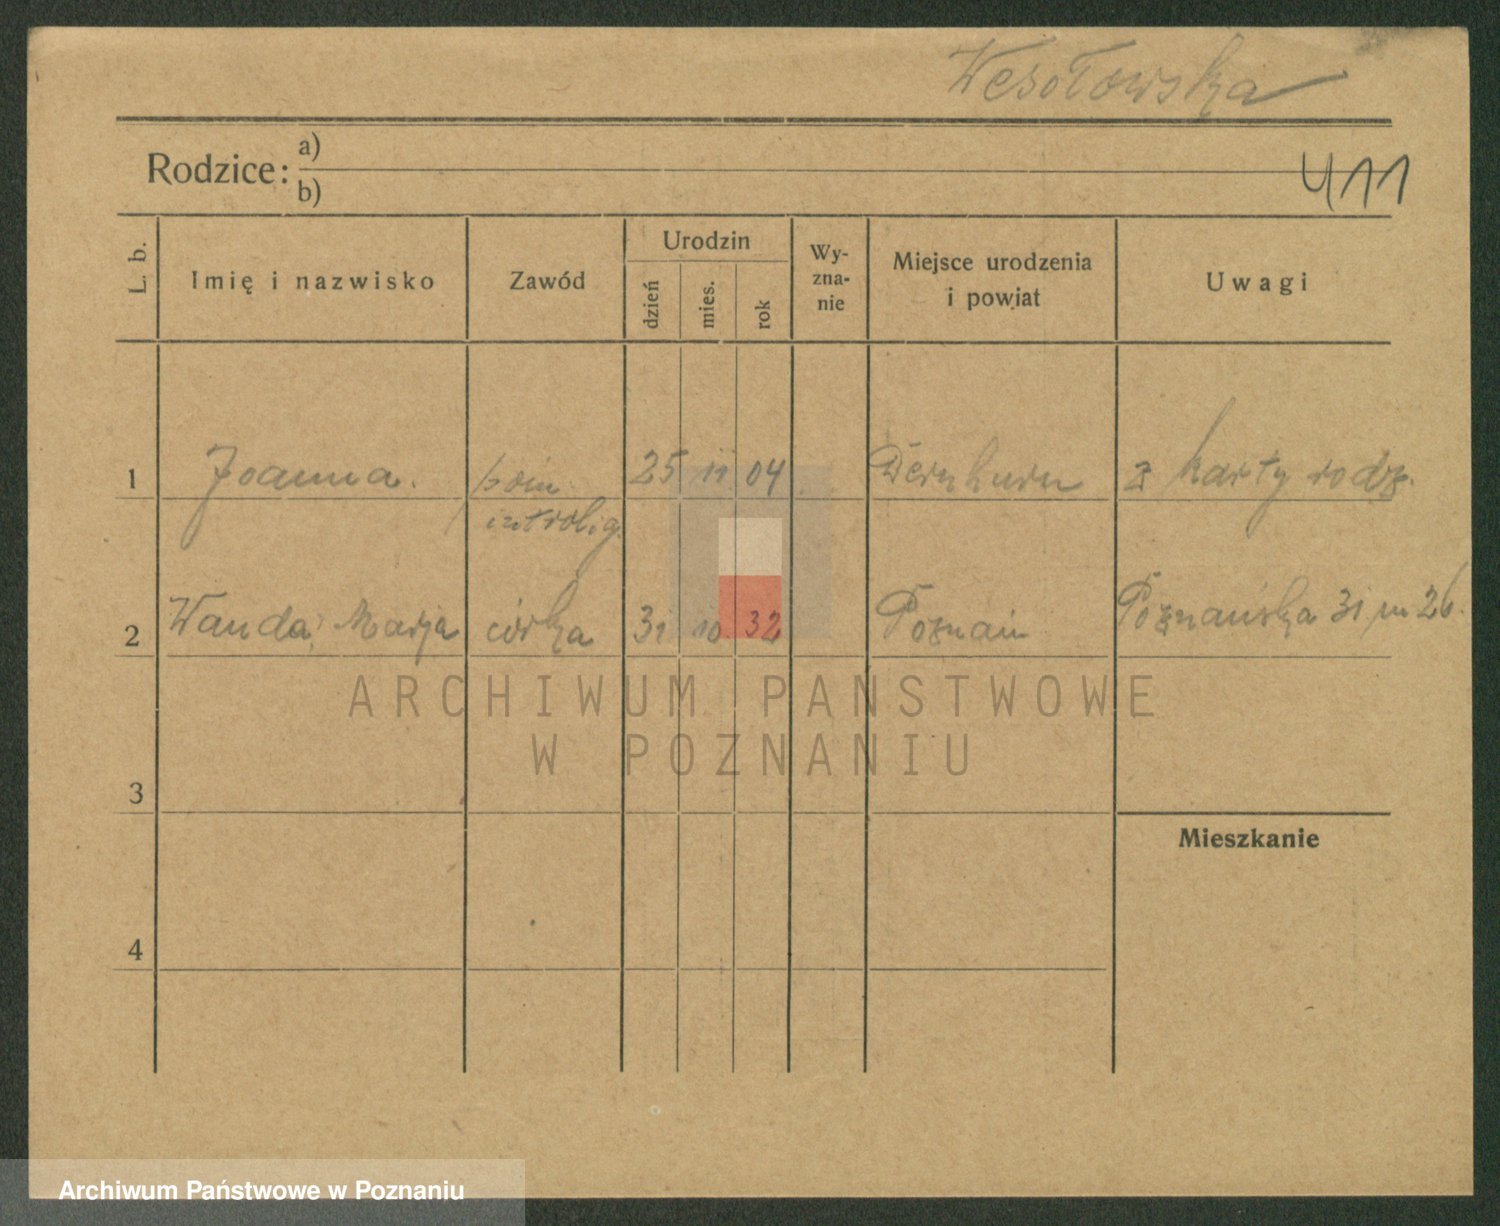 Wesołowska
Rodzice: a)
b)
411
L. b.
Imię i nazwisko
Zawód
Urodzin
dzień
mies.
rok
Wy-
zna-
nie
Miejsce urodzenia
i powiat
Uwagi
1 Joanna. 25 11 04 z karty rodz.
introlig.
2 Wanda, Marja córka 31 10 32 Poznań Poznańska 31 m 26.
ARCHIWUM PAŃSTWOWE
W POZNANIU
3
Mieszkanie
4
Archiwum Państwowe w Poznaniu